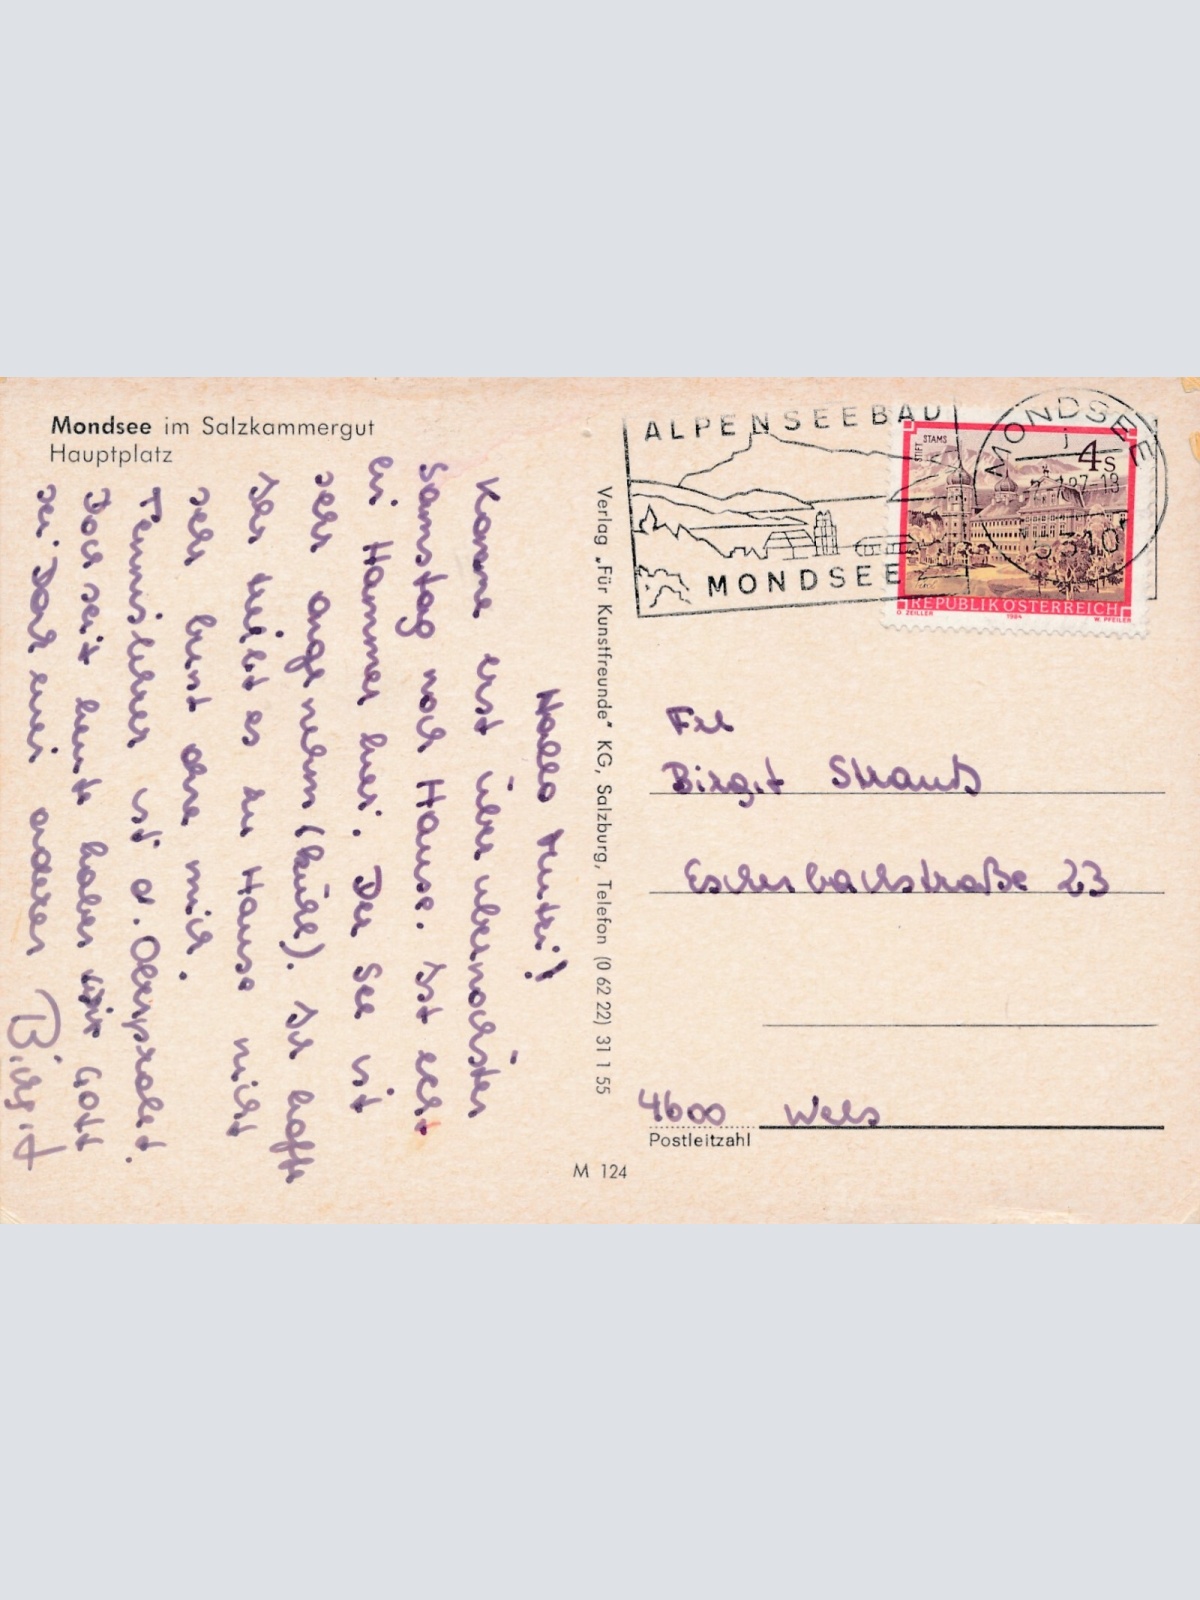 Mondsee im Salzkammergut
Hauptplatz
Hallo Mutzi!
Komme erst über übernächsten
Samstag nach Hause. Ist echt
ein Hammer hier. Der See ist
sehr angenehm (kühl). Ich hoffe
Dir es zu Hause nicht
sehr ohne mich.
Tennislehrer ist a. Oberprolet.
Doch seit heute haben wir Gott
sei Dank einen anderen
Birgit
Verlag „Für Kunstfreunde" KG, Salzburg, Telefon (0 62 22) 31 1 55
M 124
ALPENSEEBAD
MONDSEE
MONDSEE
87-18
5310
STIFT STAMS
4 S
REPUBLIK ÖSTERREICH
O. ZEILLER 1984 W. PFEILER
Frl
Birgit Strauß
Eschenbachstraße 23
4600 Wels
Postleitzahl